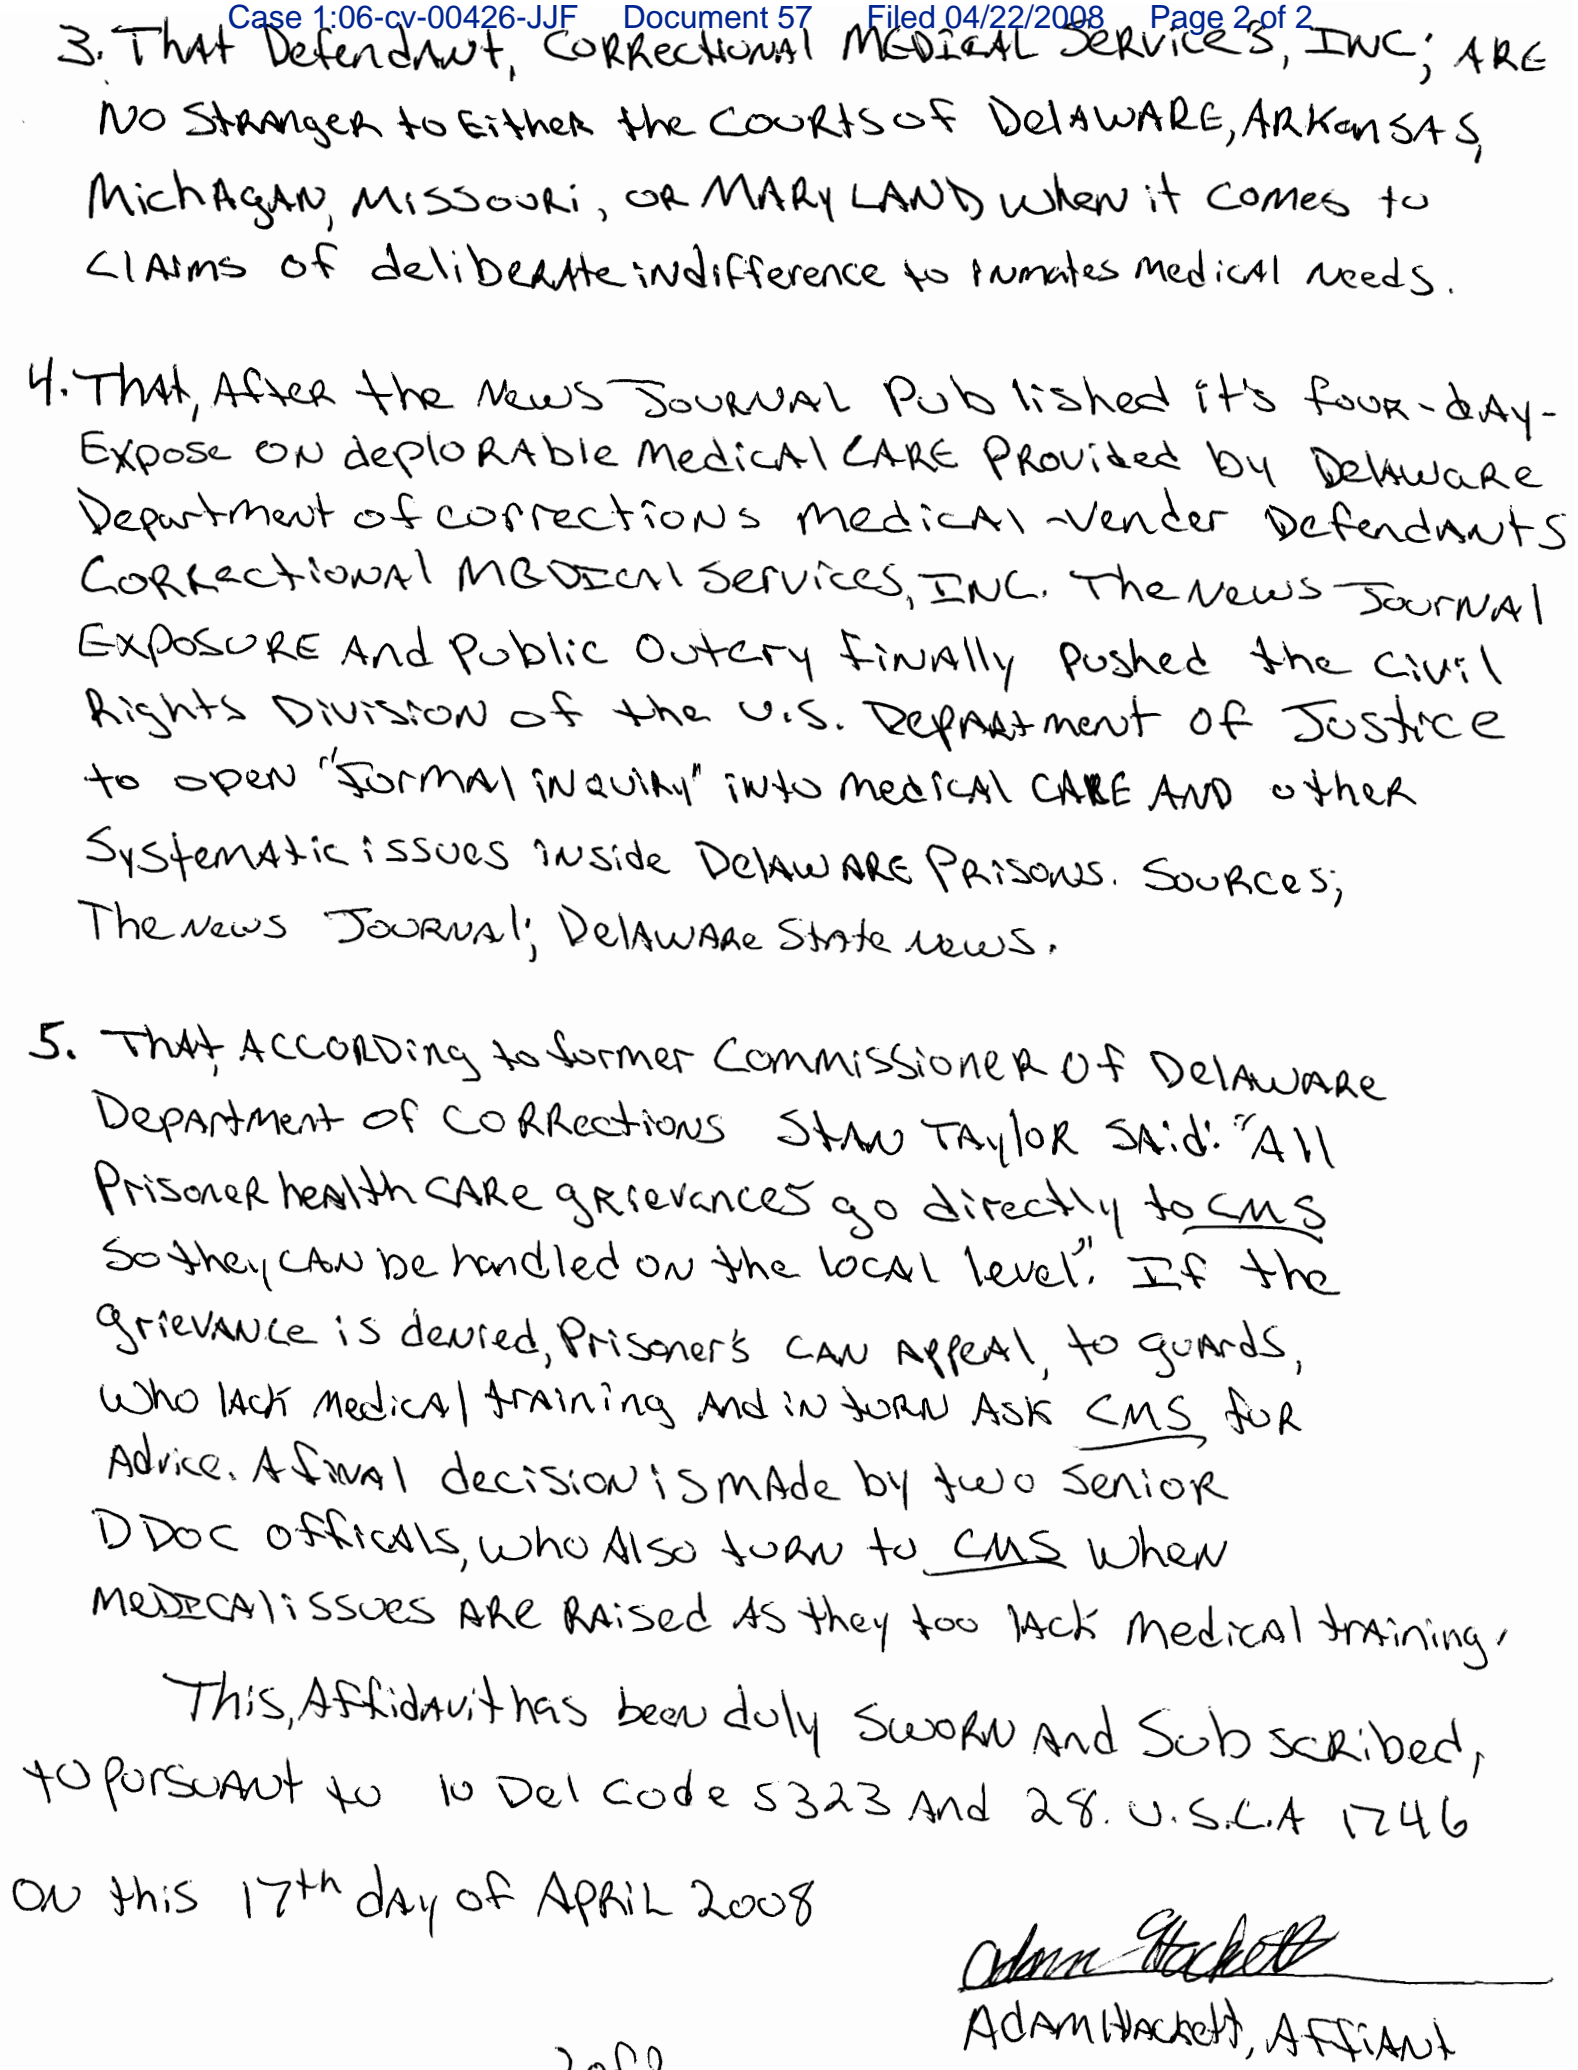 Case 1:06-cv-00426-JJF Document 57 Filed 04/22/2008 Page 2 of 2
3. That Defendant, Correctional Medical Services, INC; are
no stranger to either the courts of Delaware, Arkansas,
Michagan, Missouri, or Maryland when it comes to
claims of deliberate indifference to inmates medical needs.
4. That, after the News Journal Published it's four-day-
Expose on deplorable medical care provided by Delaware
Department of corrections medical-vender Defendants
Correctional Medical Services, INC. The News Journal
Exposure and public outcry finally pushed the civil
Rights Division of the U.S. Department of Justice
to open "formal inquiry" into medical care and other
systematic issues inside Delaware Prisons. Sources;
The News Journal; Delaware State News.
5. That, according to former Commissioner of Delaware
Department of Corrections Stan Taylor said: "All
Prisoner health care grievances go directly to CMS
so they can be handled on the local level". If the
grievance is denied, Prisoner's can appeal, to guards,
who lack medical training and in turn ask CMS for
advice. A final decision is made by two senior
DDOC officals, who also turn to CMS when
medical issues are raised as they too lack medical training.
This, Affidavit has been duly sworn and Subscribed,
to pursuant to 10 Del Code 5323 and 28. U.S.C.A 1746
on this 17th day of April 2008
Adam Hackett
Adam Hackett, Affiant
2 of 2